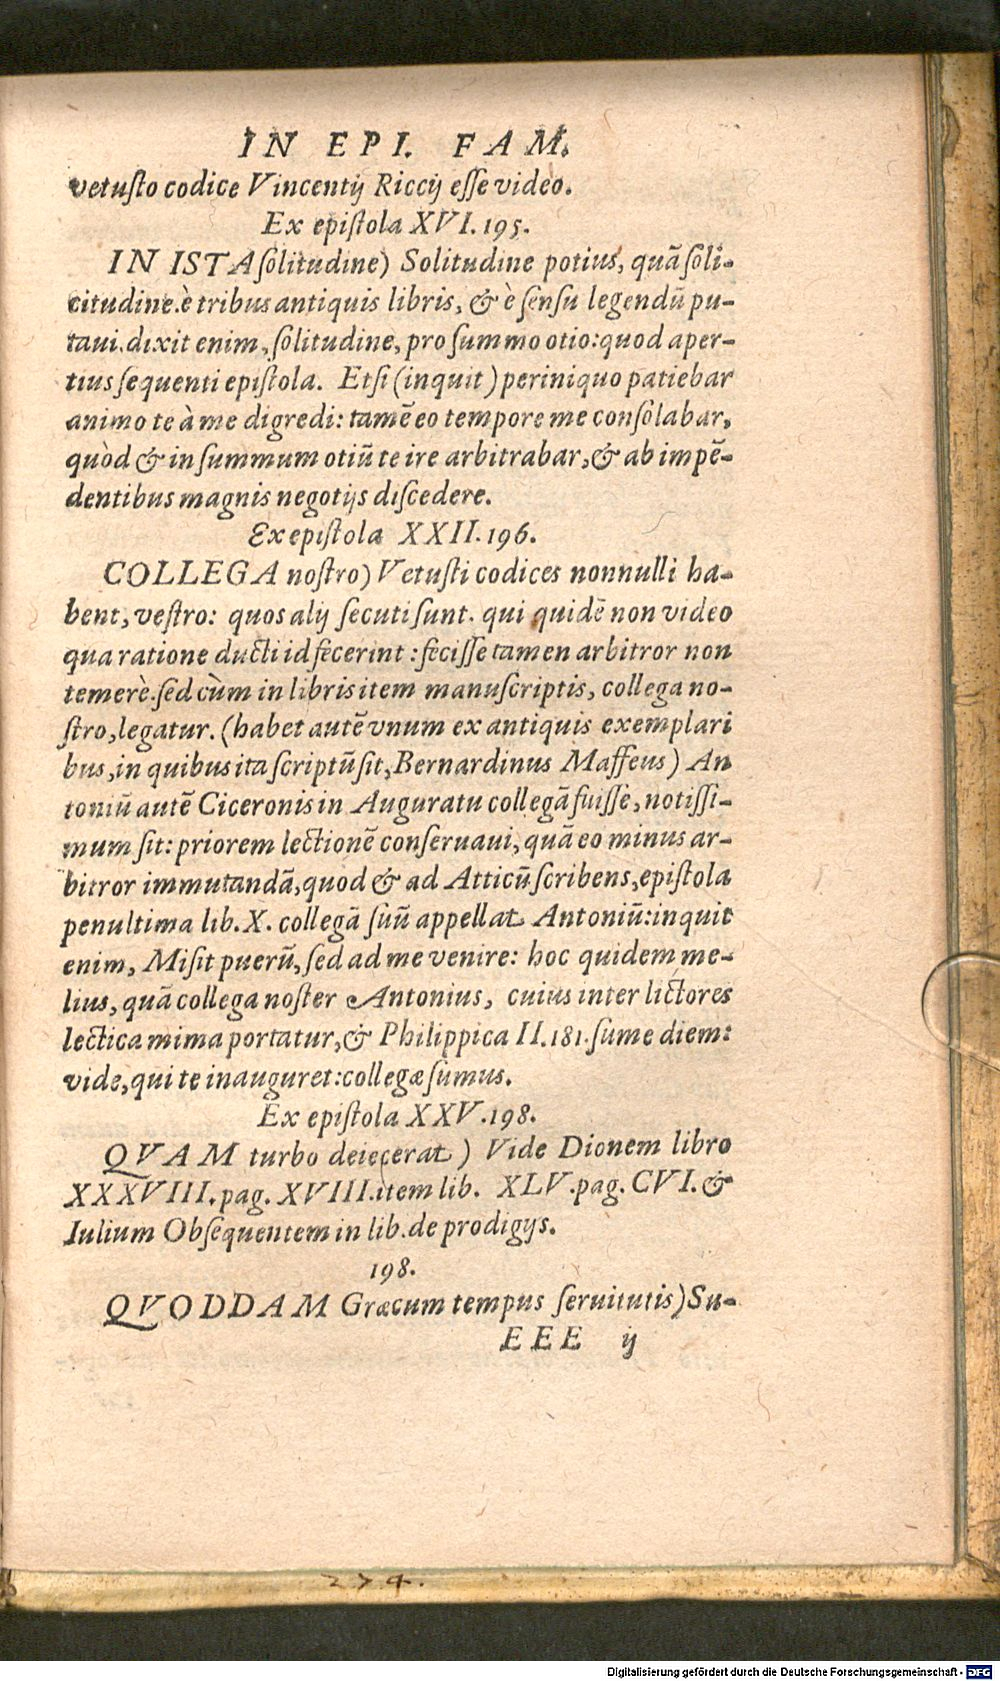 IN EPI. FAM.
vetusto codice Vincentij Riccij esse video.
Ex epistola XVI. 195.
IN ISTA solitudine) Solitudine potius, quā soli-
citudine. è tribus antiquis libris, & è sensu legendū pu-
taui. dixit enim, solitudine, pro summo otio: quod aper-
tius sequenti epistola. Etsi (inquit) periniquo patiebar
animo te à me digredi: tamē eo tempore me consolabar,
quòd & in summum otiū te ire arbitrabar, & ab impē-
dentibus magnis negotijs discedere.
Ex epistola XXII. 196.
COLLEGA nostro) Vetusti codices nonnulli ha-
bent, vestro: quos alij secuti sunt. qui quidē non video
qua ratione ducti id fecerint: fecisse tamen arbitror non
temerè. sed cùm in libris item manuscriptis, collega no-
stro, legatur. (habet autē vnum ex antiquis exemplari
bus, in quibus ita scriptū sit, Bernardinus Maffeus) An
toniū autē Ciceronis in Auguratu collegā fuisse, notissi-
mum sit: priorem lectionē conseruaui, quā eo minus ar-
bitror immutandā, quod & ad Atticū scribens, epistola
penultima lib. X. collegā suū appellat Antoniū: inquit
enim, Misit puerū, sed ad me venire: hoc quidem me-
lius, quā collega noster Antonius, cuius inter lictores
lectica mima portatur, & Philippica II. 181. sume diem:
vide, qui te inauguret: collegæ sumus.
Ex epistola XXV. 198.
QVAM turbo deiecerat) Vide Dionem libro
XXXVIII. pag. XVIII. item lib. XLV. pag. CVI. &
Iulium Obsequentem in lib. de prodigijs.
198.
QVODDAM Græcum tempus seruitutis) Su-
EEE ij
274.
Digitalisierung gefördert durch die Deutsche Forschungsgemeinschaft - DFG